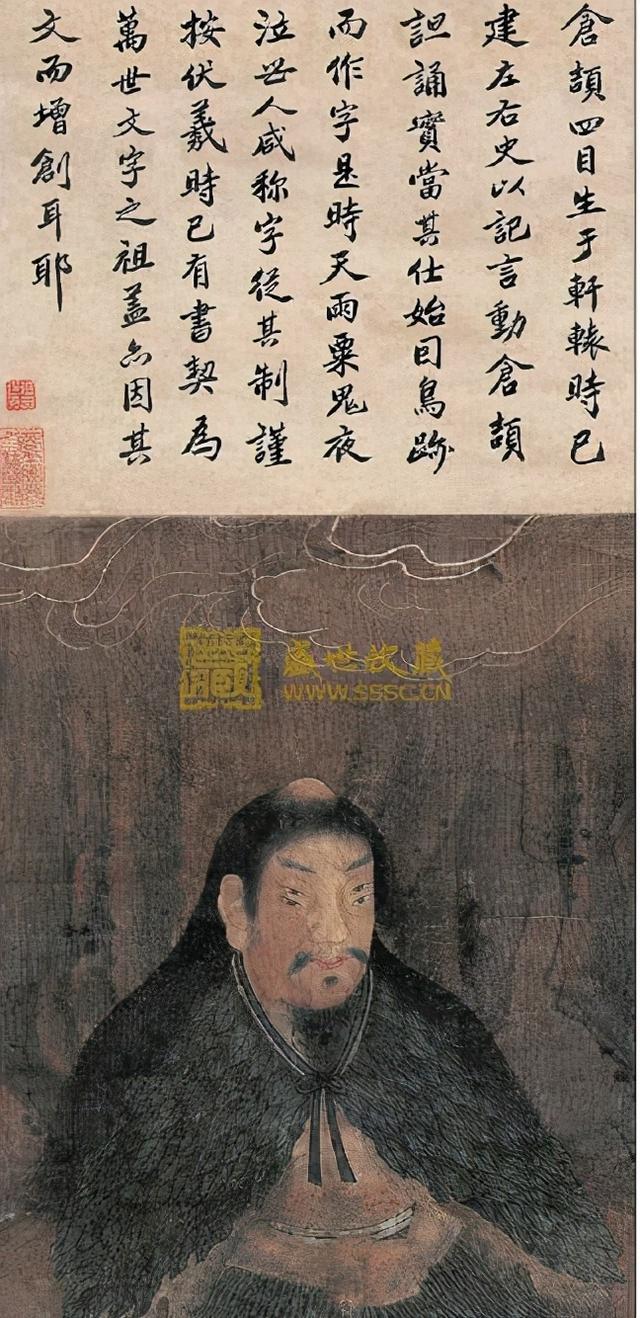 倉頡四目生于軒轅時已
建左右史以記言動倉頡
詛誦實當其仕始囙鳥跡
而作字是時天雨粟鬼夜
泣世人咸称字從其制謹
按伏羲時已有書契為
萬世文字之祖蓋亦因其
文而增創耳耶
藏
盛世收藏
WWW.SSSC.CN